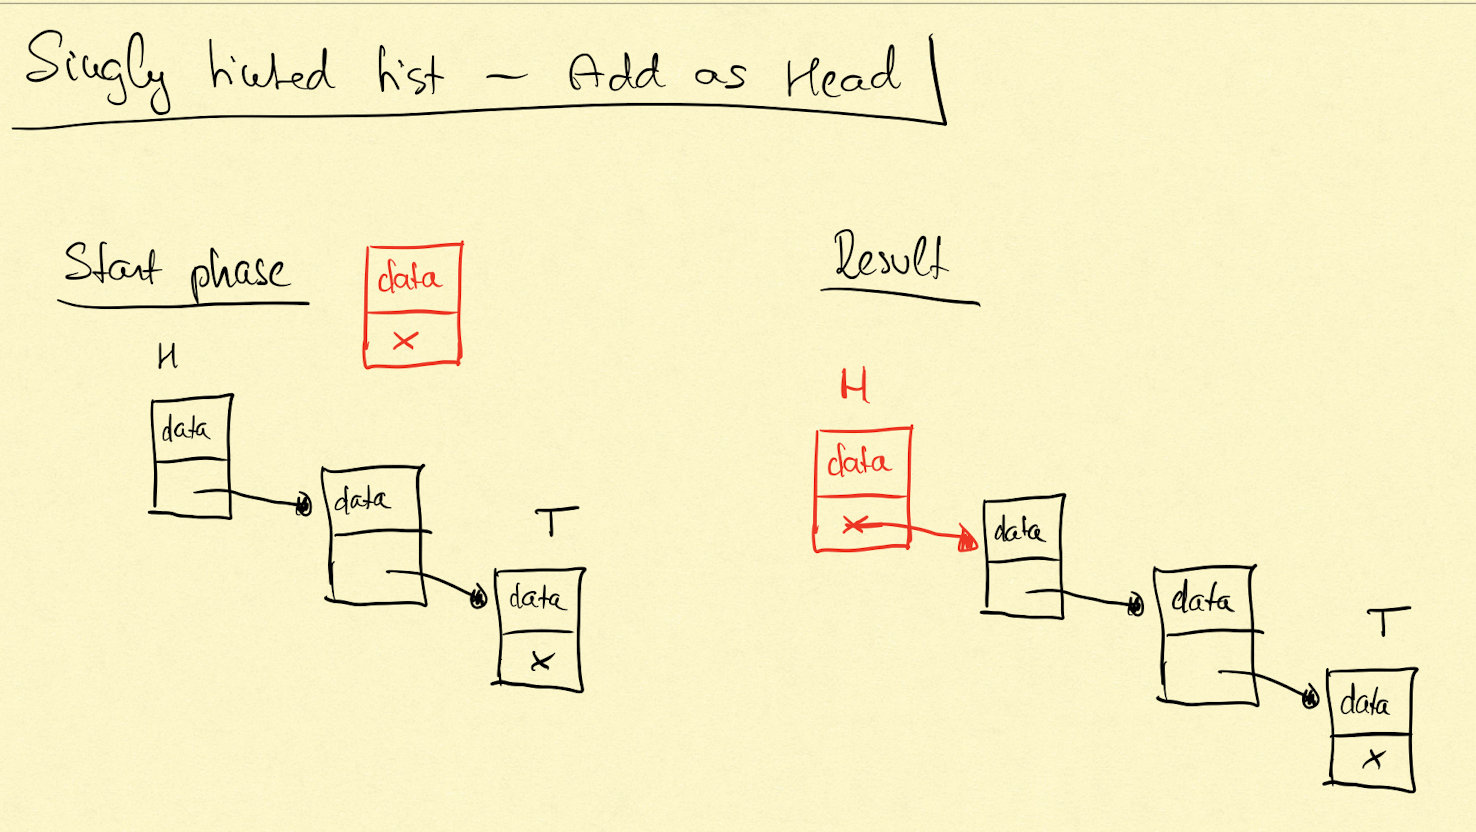 Singly Linked List – Add as Head
Start phase
data
X
H
data
data
T
data
X
Result
H
data
X
data
data
T
data
X